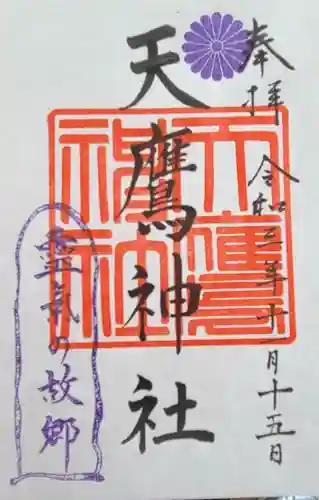 奉拝
令和三年十一月十五日
天鷹神社
天鷹神社
霊氣の故郷